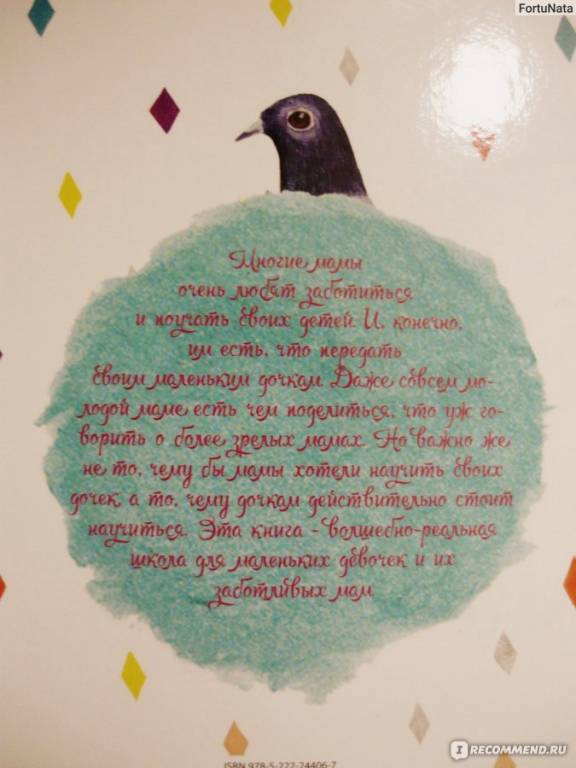 FortuNata
Многие мамы
очень любят заботиться
и поучать своих детей. И, конечно,
им есть, что передать
своим маленьким дочкам. Даже совсем мо-
лодой маме есть чем поделиться, что уж го-
ворить о более зрелых мамах. Но важно же
не то, чему бы мамы хотели научить своих
дочек, а то, чему дочкам действительно стоит
научиться. Эта книга - волшебно-реальная
школа для маленьких девочек и их
заботливых мам.
ISBN 978-5-222-24406-7
I RECOMMEND.RU